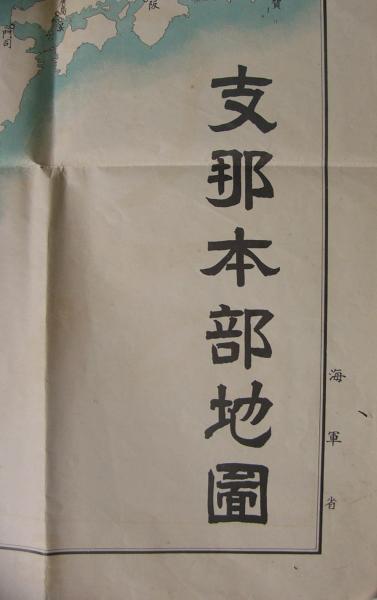 支那本部地圖
海軍省
門司
阪